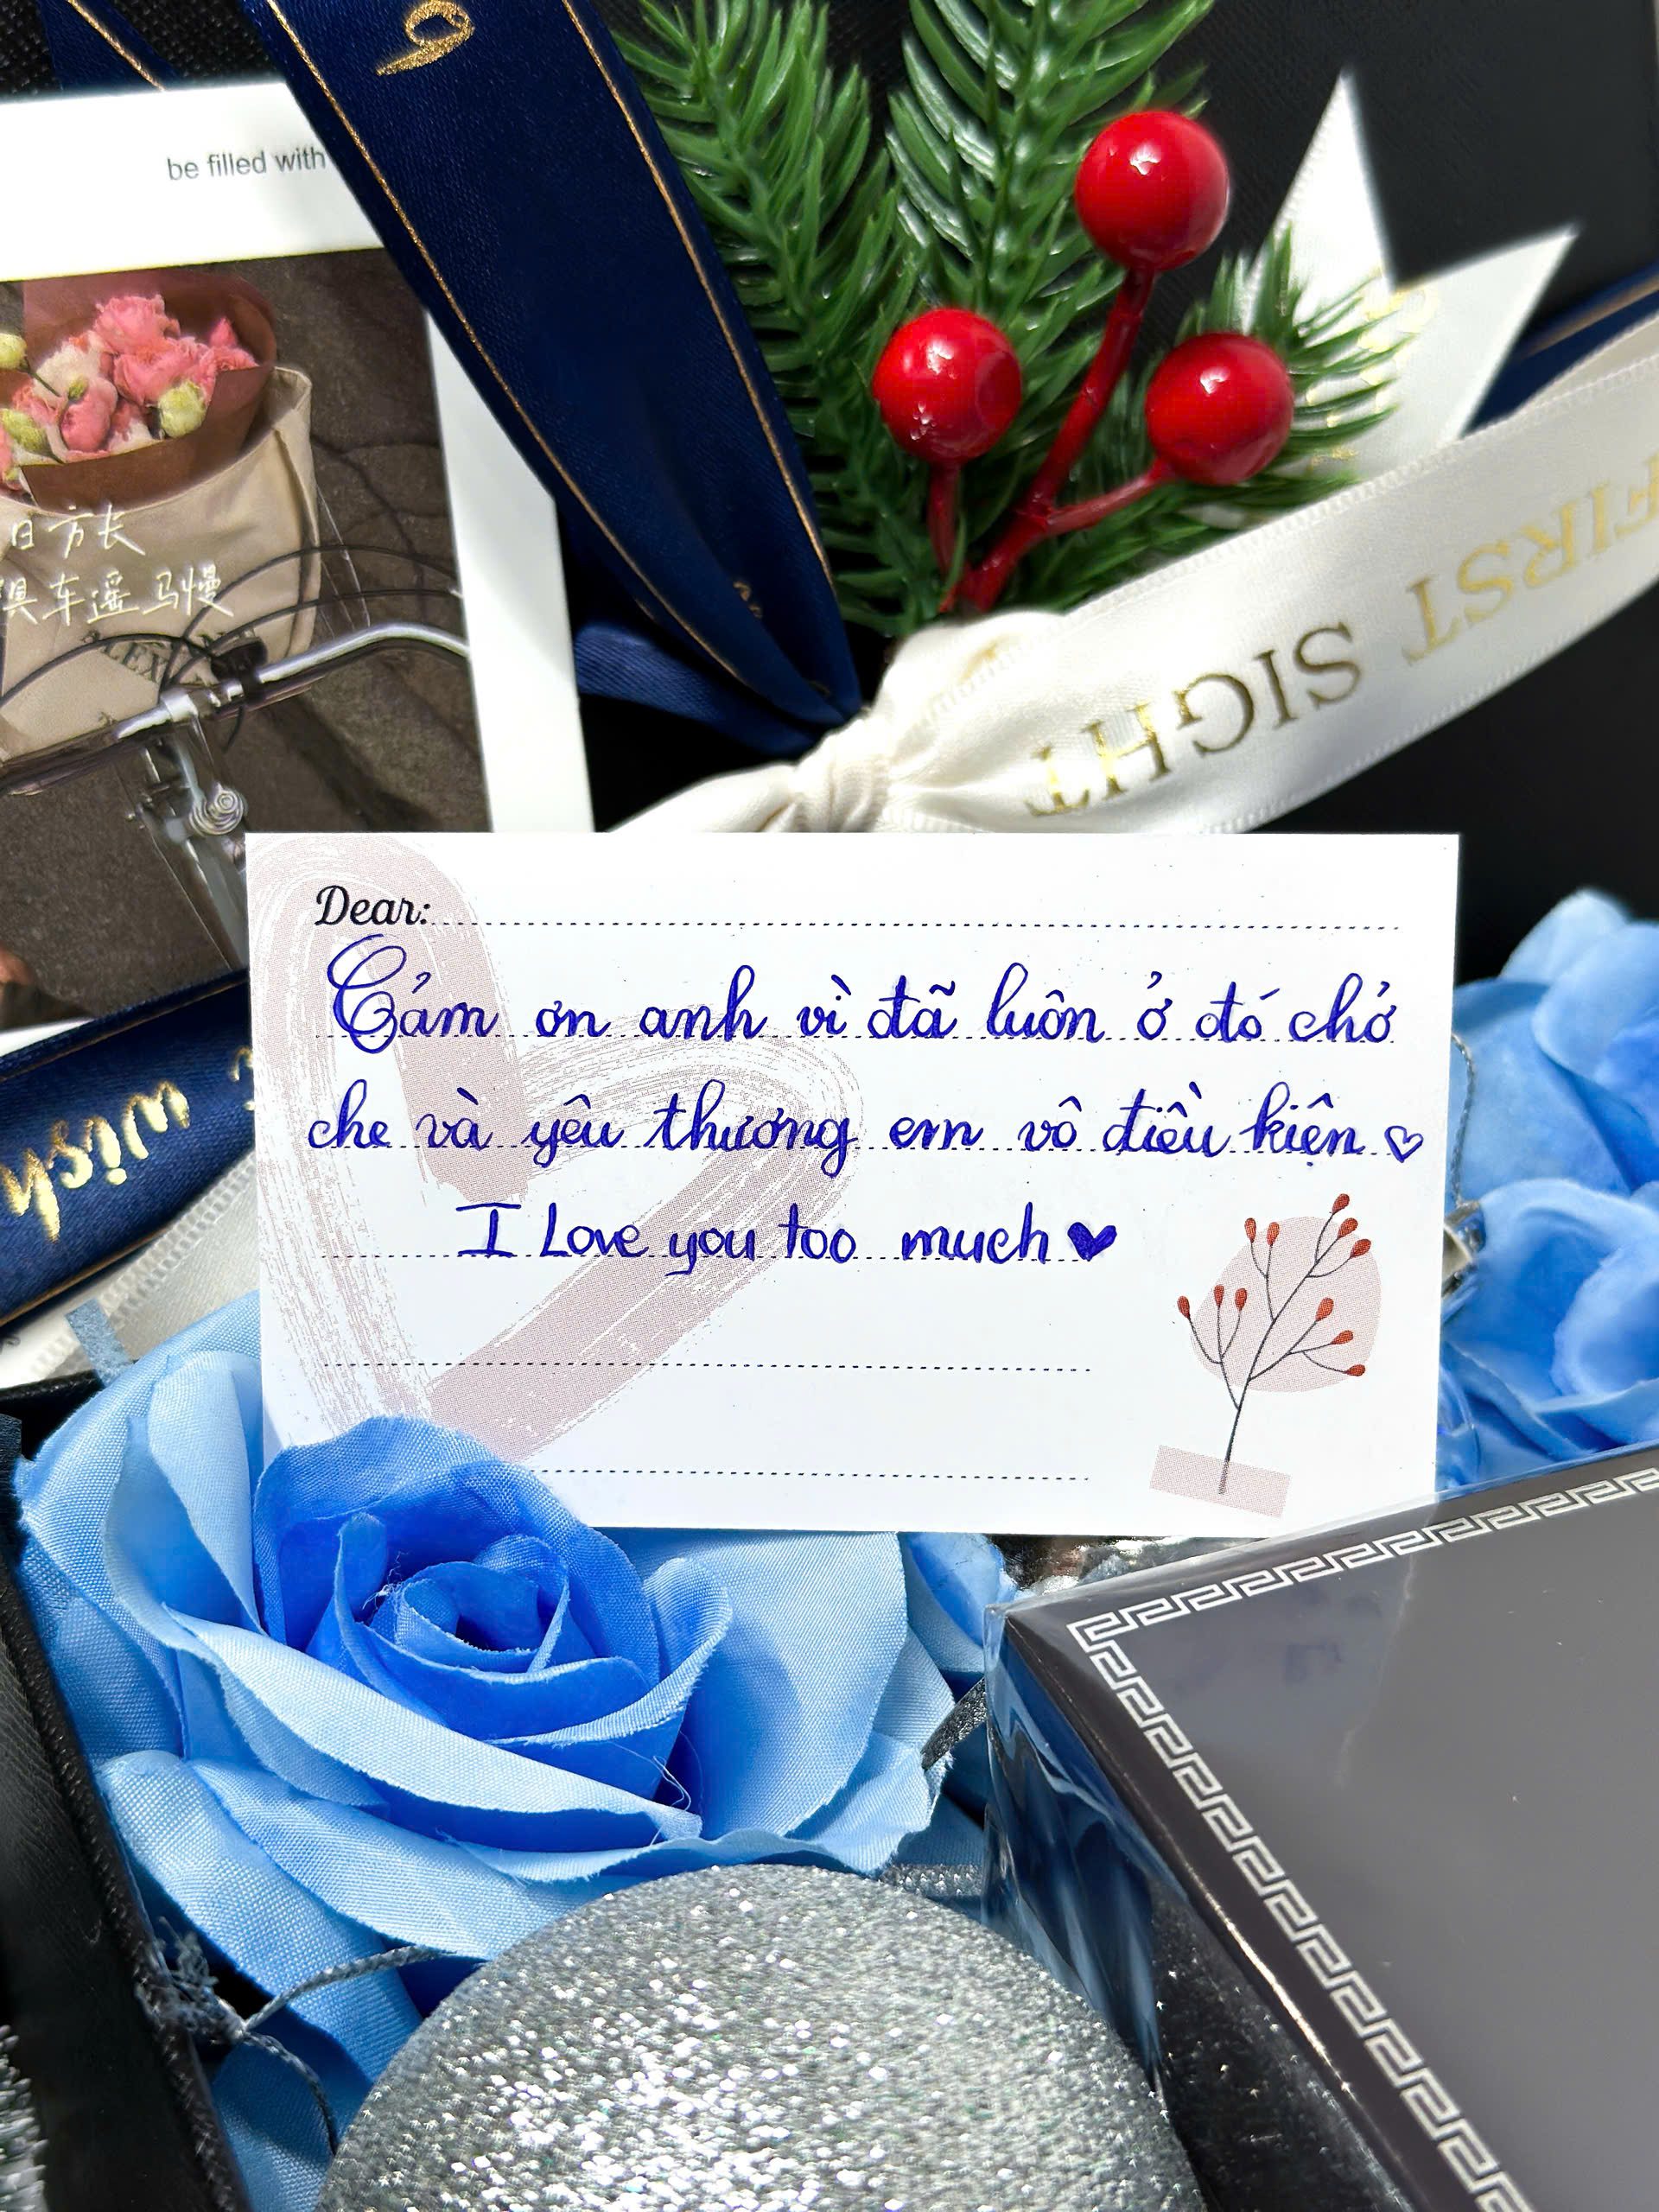 be filled with
日方长
车遥马慢
FIRST SIGHT
Dear:
Cảm ơn anh vì đã luôn ở đó chở
che và yêu thương em vô điều kiện ♡
I Love you too much ♥
wish